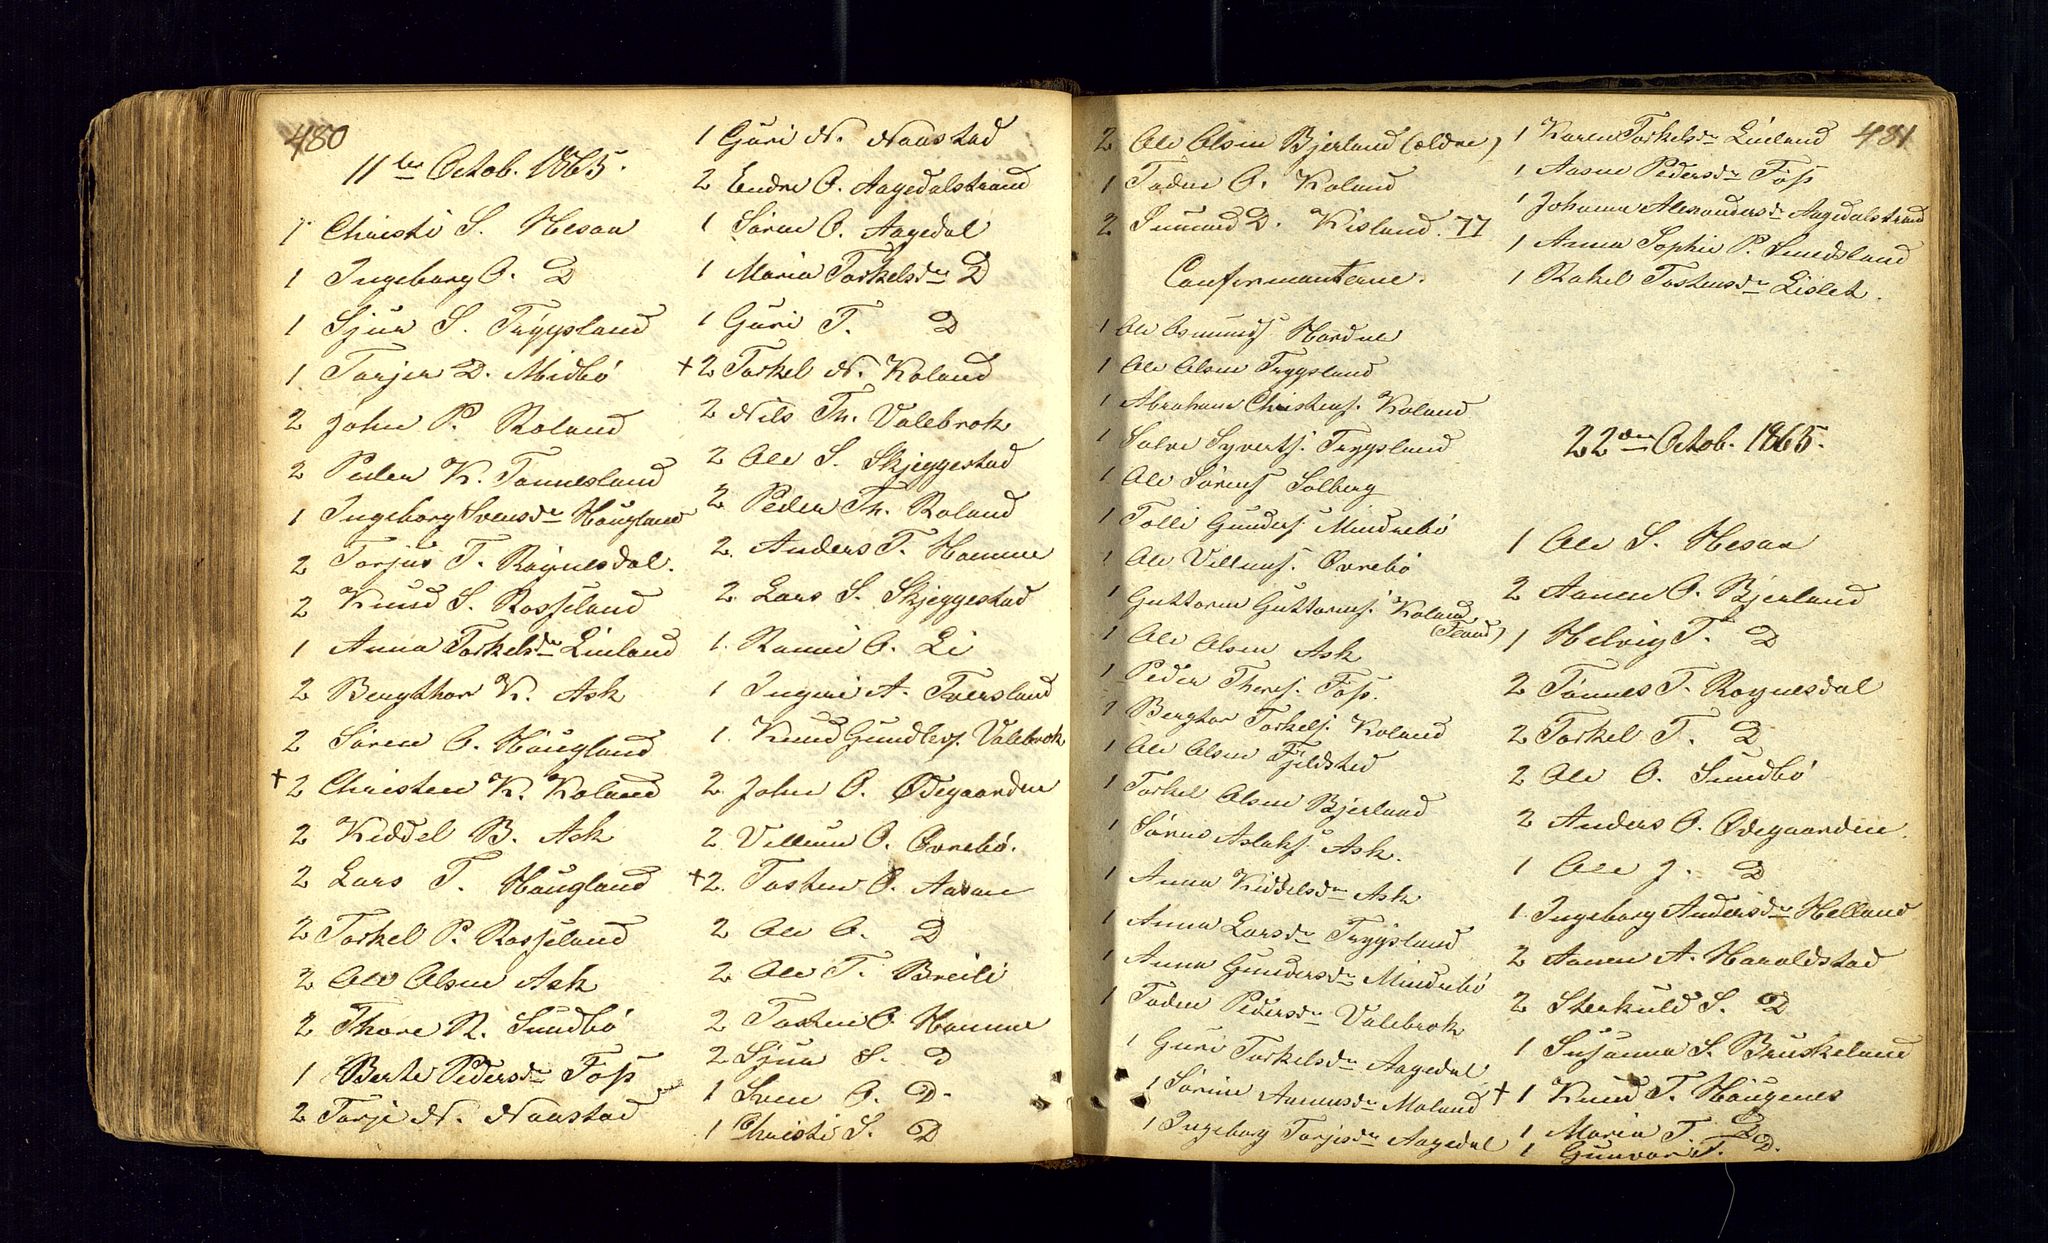 480
11te Octob. 1865.
1 Christi S. Hesaa
1 Ingeborg O. D
1 Sjur S. Tryggsland
1 Torjer D. Midbö
2 John P. Roland
2 Peder K. Tonnesland
1 Ingeborg Svensdr Höugland
2 Torjus T. Røinesdal.
2 Knud S. Rosseland
1 Anna Torkelsdr Linland
2 Bergthor K. Ask
2 Sören O. Höugland
+ 2 Christen K. Roland
2 Keddel B. Ask
2 Lars T. Höugland
2 Torkel P. Rosseland
2 Ole Olsen Ask
2 Thore R. Sundbö
1 Berte Pedersdr Foss
2 Torje N. Naastad
1 Guri N. Naastad
2 Endre O. Aagedalstrand
1 Sören O. Aagedal
1 Maria Torkelsdr D
1 Guri T. D
+ 2 Torkel N. Roland
2 Nils Th. Valebrok
2 Ole S. Skjeggestad
2 Peder Th. Roland
2. Anders T. Homme
2. Lars S. Skjeggestad
1. Ramni O. Li
1 Ingri A. Tversland
1. Knud Gundlers. Valebrok
2. John O. Ødegaarden
2. Villum O. Øvrebö.
+ 2. Tosten O. Aasen
2 Ole O. D
2 Ole T. Breili
2 Tosten O. Homme
2 Sjur S. D
1 Sven O. D.
1 Christi S. D
481
2 Ole Olsen Bjerland (ældre)
1 Todne O. Roland
2 Gunund D. Kisland. 77
Confirmanterne.
1 Ole Osmunds. Hordne
1 Ole Olsen Tryggsland
1 Abraham Christens. Roland
1 Salve Syverts. Tryggsland
1 Ole Sörens. Solberg
1 Tolli Gunders. Mindrebö
1 Ole Villums. Øvrebö
1 Guttorm Guttorms. Roland
1 Ole Olsen Ask
1 Peder Thores. Foss.
1 Bergtor Torkels. Roland
1 Ole Olsen Fjeldsted
1 Torkel Olsen Bjerland
1 Sören Aslaks. Ask.
1 Anna Keddelsdr Ask
1 Anna Larsdr Tryggsland
1 Anna Gundersdr Mindrebö
1 Todne Pedersdr Valebrok
1 Guri Torkelsdr Aagedal
1 Sörine Aanensdr Moland
1 Ingeborg Torjusdr Aagedal
1 Karen Torkelsdr Linland
1 Aasne Pedersdr Foss
1 Johanne Alexandersdr Aagedalstrand
1 Anna Sophie P. Smedsland
1 Rakel Tostensdr Lislet.
22den Octob. 1865.
1 Ole S. Hesaa
2 Aanen O. Bjerland
1 Helvig T. D
2 Tönnes T. Roynesdal
2 Torkel T. D
2 Ole O. Sundbö
2 Anders O. Ødegaarden.
1 Ole J. D
1. Ingeborg Andersdr Helland
2 Aanen A. Haraldstad
2 Sterkuld S. D
1 Susanna S. Bruskeland
+ 1 Knud T. Höugenes
1 Maria T. D
1 Gunvor T. D.